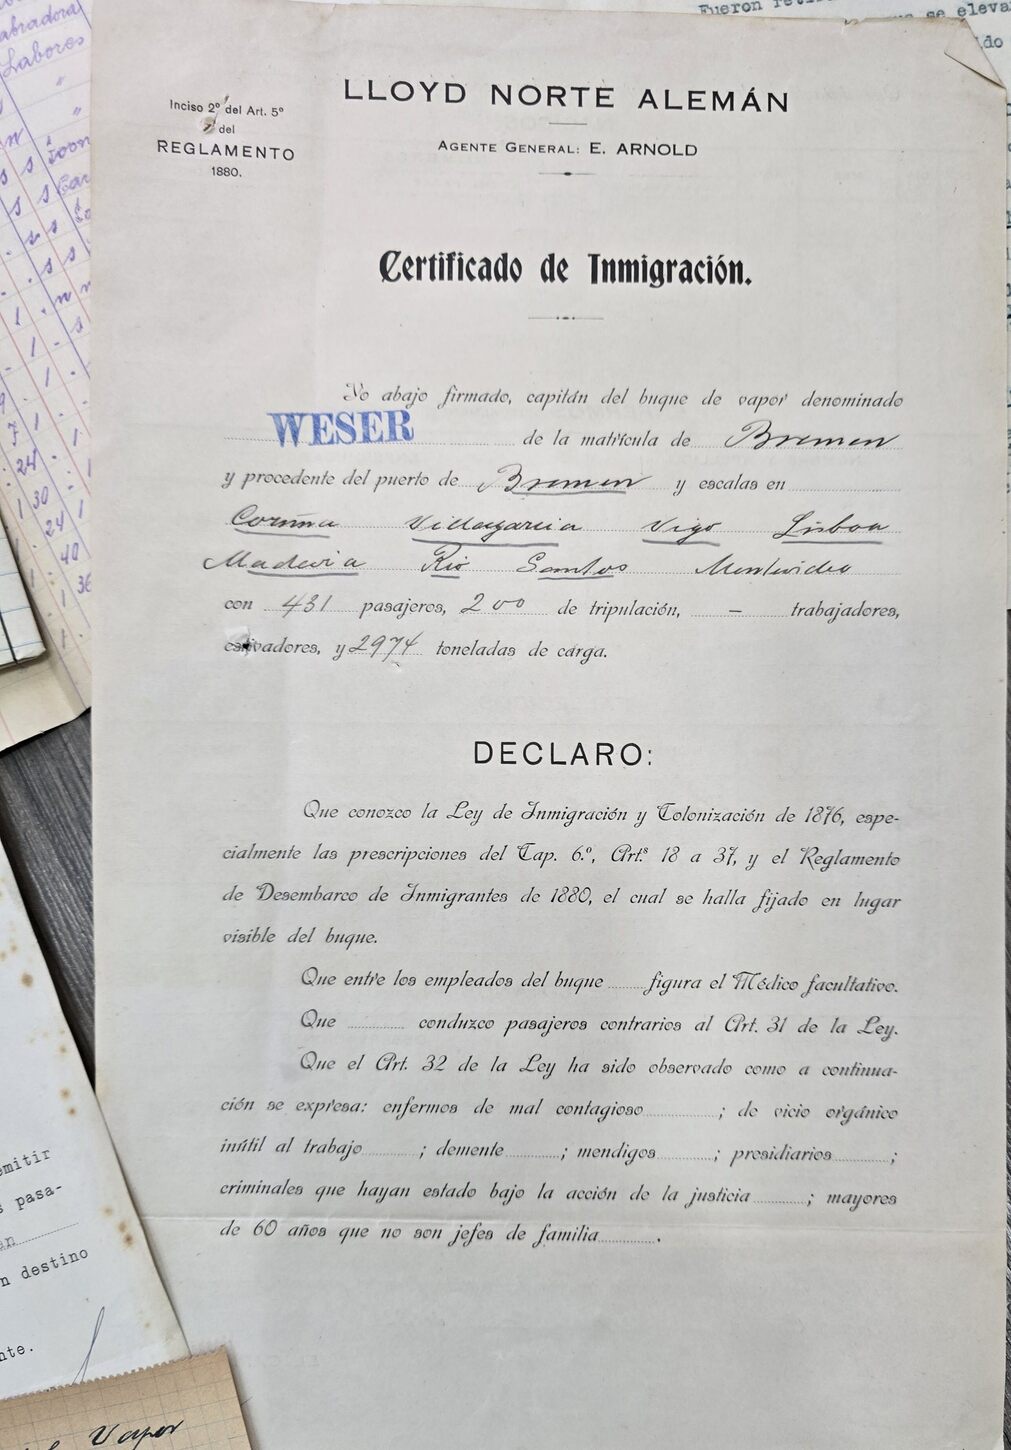 Fueron
se eleva
abradora
Labores
LLOYD NORTE ALEMÁN
Inciso 2º del Art. 5º
del
REGLAMENTO
1880.
AGENTE GENERAL: E. ARNOLD
Certificado de Inmigración.
Yo abajo firmado, capitán del buque de vapor denominado
WESER de la matrícula de Bremen
y procedente del puerto de Bremen y escalas en
Coruña Villagarcia Vigo Lisboa
Madeira Rio Santos Montevideo
con 431 pasajeros, 200 de tripulación, — trabajadores,
estivadores, y 2974 toneladas de carga.
DECLARO:
Que conozco la Ley de Inmigración y Colonización de 1876, espe-
cialmente las prescripciones del Cap. 6.º, Art.s 18 a 37, y el Reglamento
de Desembarco de Inmigrantes de 1880, el cual se halla fijado en lugar
visible del buque.
Que entre los empleados del buque ........ figura el Médico facultativo.
Que ............ conduzco pasajeros contrarios al Art. 31 de la Ley.
Que el Art. 32 de la Ley ha sido observado como a continua-
ción se expresa: enfermos de mal contagioso ............; de vicio orgánico
inútil al trabajo ..........; demente ..........; mendigos ..........; presidiarios ..........;
criminales que hayan estado bajo la acción de la justicia ..........; mayores
de 60 años que no son jefes de familia ...........
emitir
s pasa-
an
n destino
nte.
Vapor